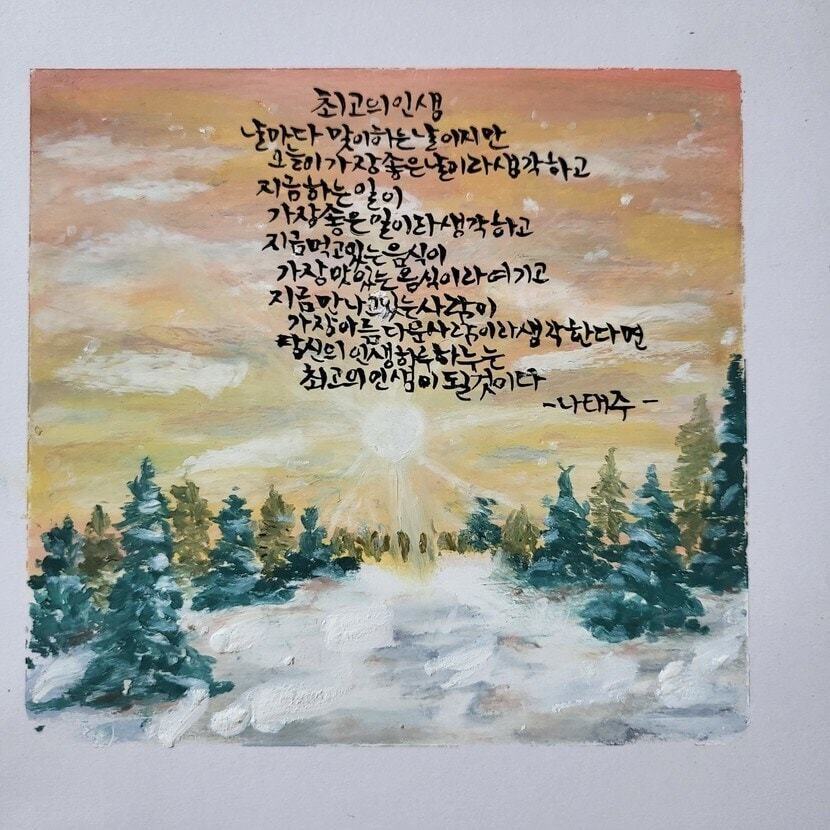 최고의 인생
날마다 맞이하는 날이지만
오늘이 가장 좋은 날이라 생각하고
지금 하는 일이
가장 좋은 일이라 생각하고
지금 먹고 있는 음식이
가장 맛있는 음식이라 여기고
지금 만나고 있는 사람이
가장 아름다운 사람이라 생각한다면
당신의 인생 하루하루는
최고의 인생이 될 것이다
- 나태주 -